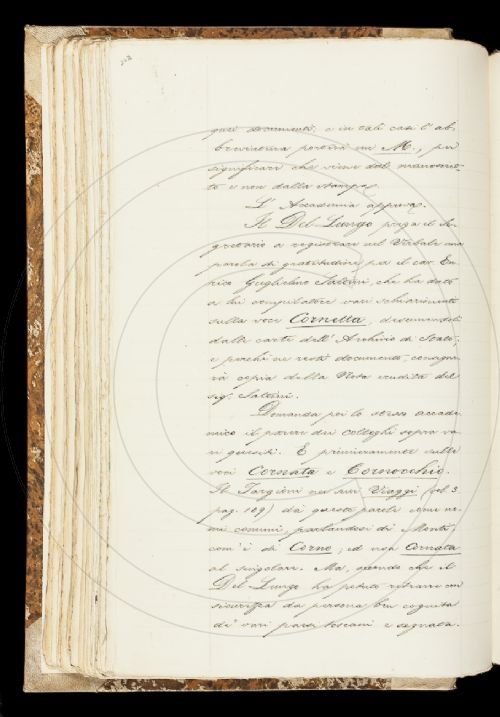 quei documenti, e in tali casi l'ab-
breviatura porterà un M., per
significare che viene dal manoscrit-
to e non dalla stampa.
L'Accademia approva.
Il Del-Lungo prega il Se-
gretario a registrare nel Verbale una
parola di gratitudine per il cav. En-
rico Guglielmo Saltini, che ha dato
a lui compilatore vari schiarimenti
sulla voce Cornetta, desumendoli
dalle carte dell'Archivio di Stato;
e perchè ne resti documento, consegna
la copia della Nota erudita del
sig. Saltini.
Domanda poi lo stesso accade-
mico il parere dei colleghi sopra va-
ri quesiti. E primieramente sulle
voci Cornata e Cornocchio.
Il Targioni ne' suoi Viaggi (vol. 3.
pag. 109) dà queste parole come no-
mi comuni, parlandosi di Monti,
com'è di Corno; ed usa Cornata
al singolare. Ma, secondo che il
Del-Lungo ha potuto ritrarre con
sicurezza da persona ben cognita
di vari paesi toscani e segnata-